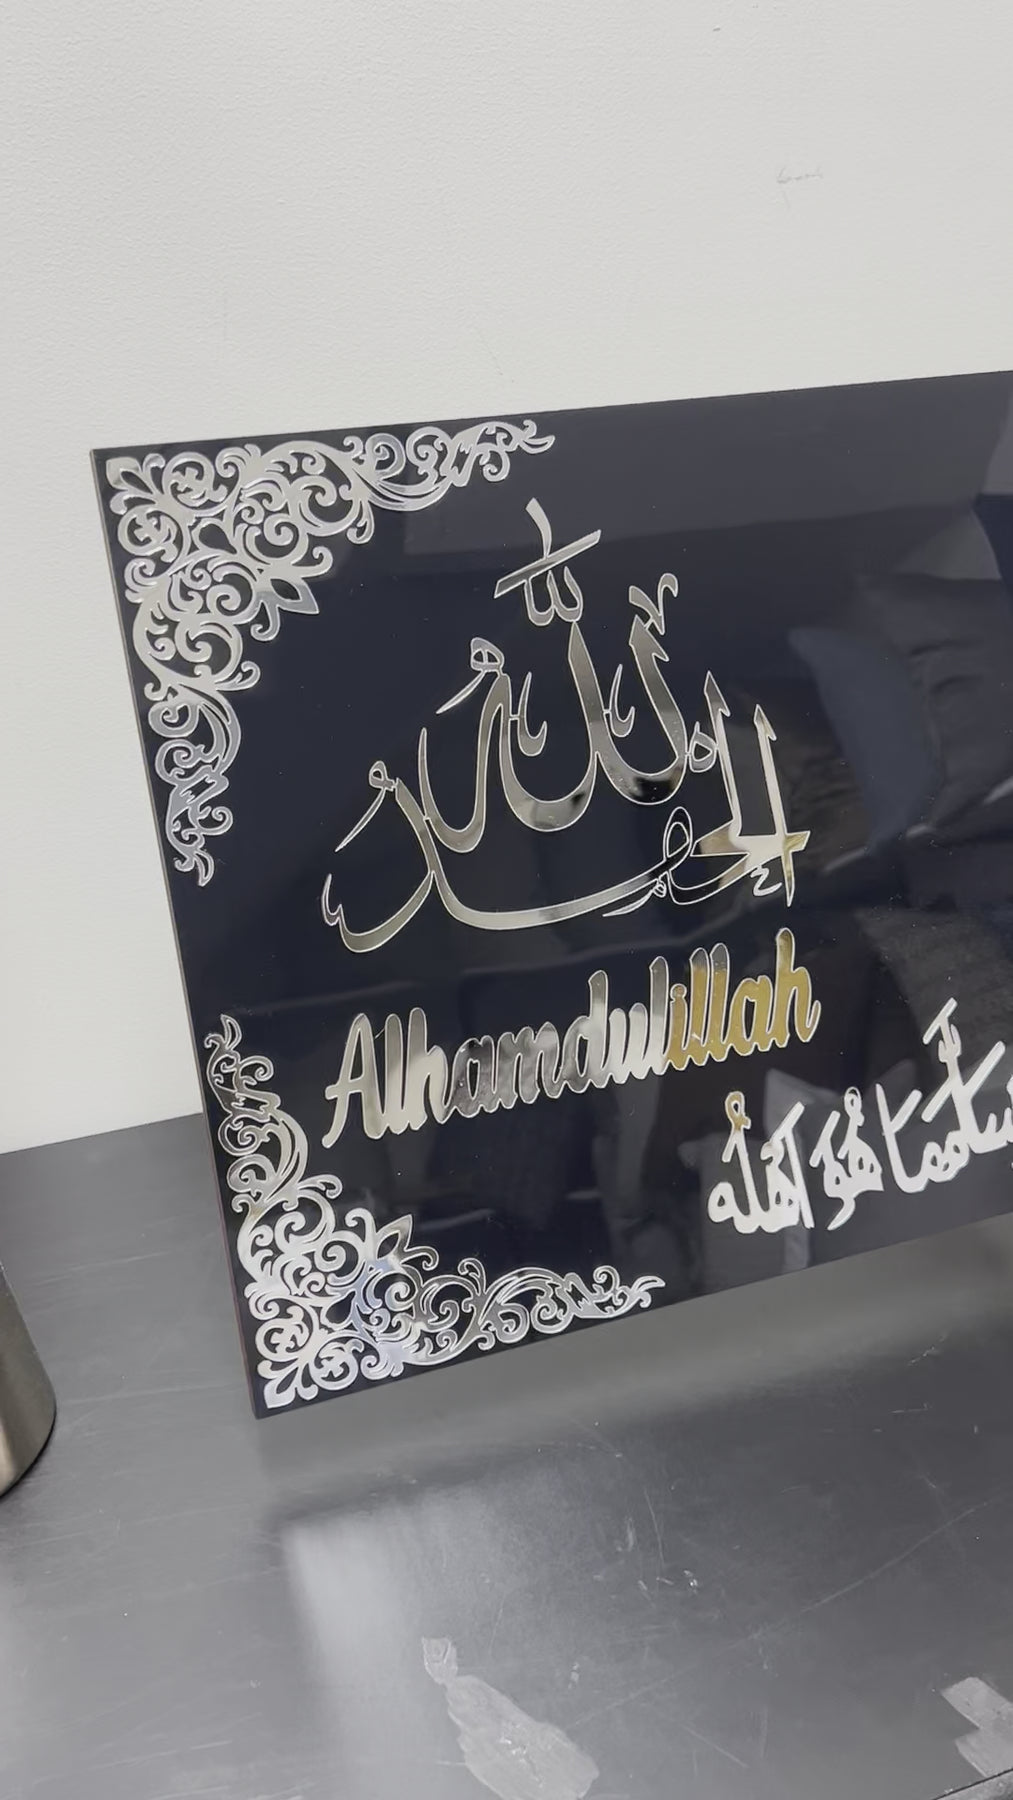 الحمد لله
Alhamdulillah
كما هو أهله